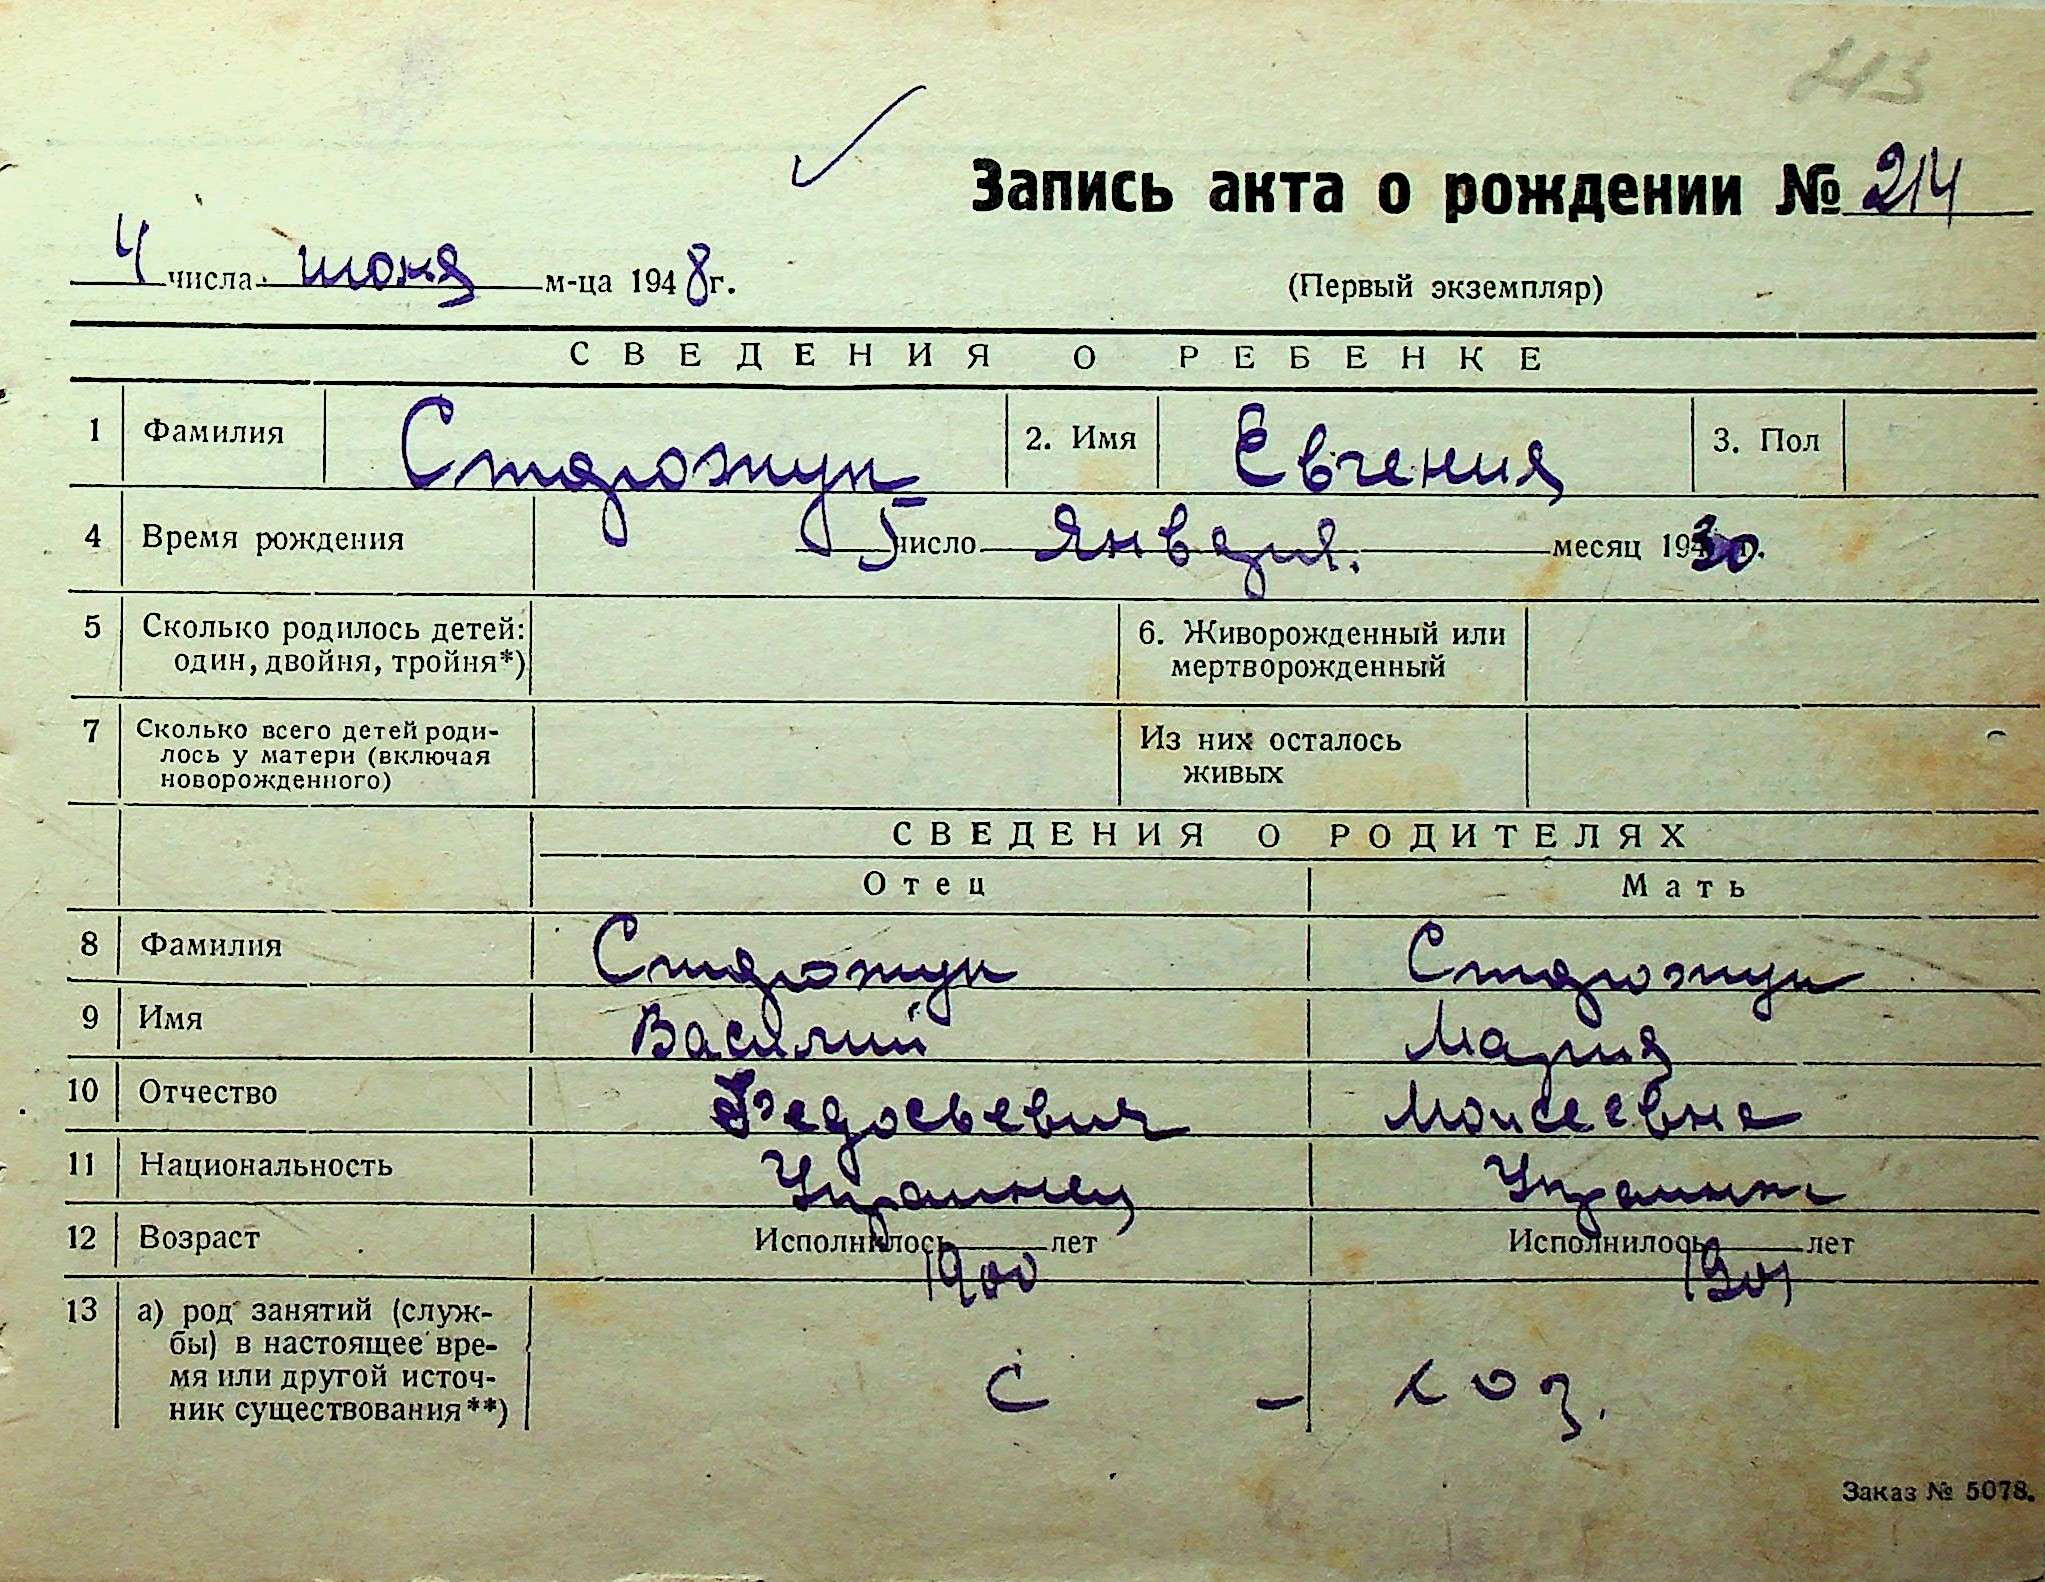 213
Запись акта о рождении № 214
4 числа июня м-ца 1948 г.
(Первый экземпляр)
СВЕДЕНИЯ О РЕБЕНКЕ
1 Фамилия Сторожук 2. Имя Евгения 3. Пол
4 Время рождения 5 число Января. месяц 1930 г.
5 Сколько родилось детей: один, двойня, тройня*)
6. Живорожденный или мертворожденный
7 Сколько всего детей роди-
лось у матери (включая
новорожденного)
Из них осталось
живых
СВЕДЕНИЯ О РОДИТЕЛЯХ
Отец Мать
8 Фамилия Сторожук Сторожук
9 Имя Василий Мария
10 Отчество Федосьевич Моисеевна
11 Национальность Украинец Украинка
12 Возраст Исполнилось лет Исполнилось лет
1900 1901
13 а) род занятий (служ-
бы) в настоящее вре-
мя или другой источ-
ник существования**)
с - хоз.
Заказ № 5078.